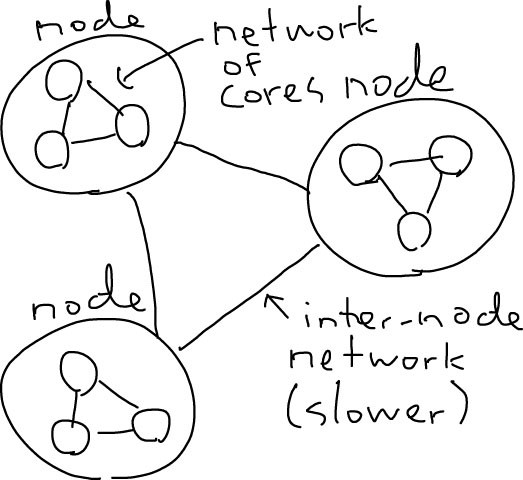 node
network
of
cores
node
node
inter-node
network
(slower)